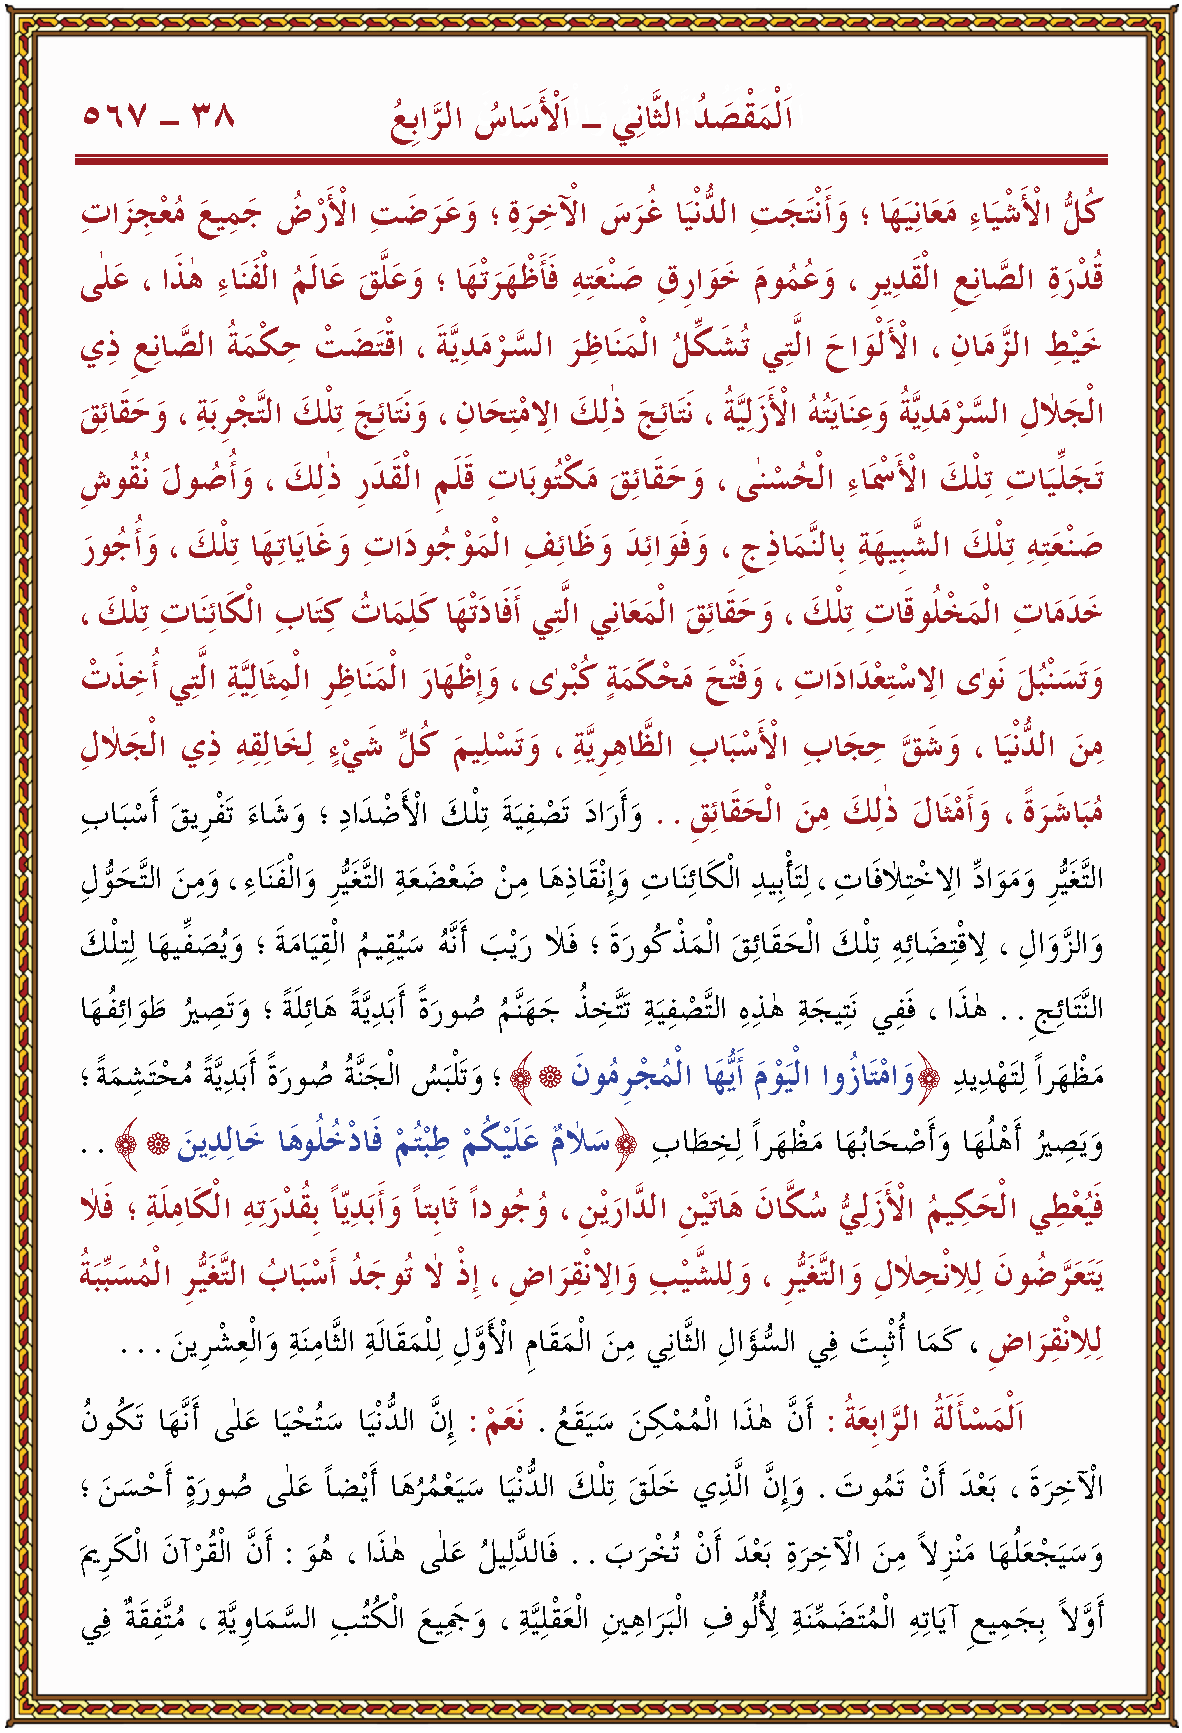 اَلْمَقْصَدُ الثَّانِي ــ اَلْأَسَاسُ الرَّابِعُ ٣٨ ــ ٥٦٧
كُلُّ الْأَشْيَاءِ مَعَانِيَهَا ؛ وَأَنْتَجَتِ الدُّنْيَا غُرَسَ الْآخِرَةِ ؛ وَعَرَضَتِ الْأَرْضُ جَمِيعَ مُعْجِزَاتِ
قُدْرَةِ الصَّانِعِ الْقَدِيرِ ، وَعُمُومَ خَوَارِقِ صَنْعَتِهِ فَأَظْهَرَتْهَا ؛ وَعَلَّقَ عَالَمُ الْفَنَاءِ هٰذَا ، عَلَى
خَيْطِ الزَّمَانِ ، الْأَلْوَاحَ الَّتِي تُشَكِّلُ الْمَنَاظِرَ السَّرْمَدِيَّةَ ، اقْتَضَتْ حِكْمَةُ الصَّانِعِ ذِي
الْجَلَالِ السَّرْمَدِيَّةُ وَعِنَايَتُهُ الْأَزَلِيَّةُ ، نَتَائِجَ ذٰلِكَ الِامْتِحَانِ ، وَنَتَائِجَ تِلْكَ التَّجْرِبَةِ ، وَحَقَائِقَ
تَجَلِّيَاتِ تِلْكَ الْأَسْمَاءِ الْحُسْنٰى ، وَحَقَائِقَ مَكْتُوبَاتِ قَلَمِ الْقَدَرِ ذٰلِكَ ، وَأُصُولَ نُقُوشِ
صَنْعَتِهِ تِلْكَ الشَّبِيهَةِ بِالنَّمَاذِجِ ، وَفَوَائِدَ وَظَائِفِ الْمَوْجُودَاتِ وَغَايَاتِهَا تِلْكَ ، وَأُجُورَ
خَدَمَاتِ الْمَخْلُوقَاتِ تِلْكَ ، وَحَقَائِقَ الْمَعَانِي الَّتِي أَفَادَتْهَا كَلِمَاتُ كِتَابِ الْكَائِنَاتِ تِلْكَ ،
وَتَسَنْبُلَ نَوَى الِاسْتِعْدَادَاتِ ، وَفَتْحَ مَحْكَمَةٍ كُبْرٰى ، وَإِظْهَارَ الْمَنَاظِرِ الْمِثَالِيَّةِ الَّتِي أُخِذَتْ
مِنَ الدُّنْيَا ، وَشَقَّ حِجَابِ الْأَسْبَابِ الظَّاهِرِيَّةِ ، وَتَسْلِيمَ كُلِّ شَيْءٍ لِخَالِقِهِ ذِي الْجَلَالِ
مُبَاشَرَةً ، وَأَمْثَالَ ذٰلِكَ مِنَ الْحَقَائِقِ . . وَأَرَادَ تَصْفِيَةَ تِلْكَ الْأَضْدَادِ ؛ وَشَاءَ تَفْرِيقَ أَسْبَابِ
التَّغَيُّرِ وَمَوَادِّ الِاخْتِلَافَاتِ ، لِتَأْبِيدِ الْكَائِنَاتِ وَإِنْقَاذِهَا مِنْ ضَعْضَعَةِ التَّغَيُّرِ وَالْفَنَاءِ ، وَمِنَ التَّحَوُّلِ
وَالزَّوَالِ ، لِاقْتِضَائِهِ تِلْكَ الْحَقَائِقَ الْمَذْكُورَةَ ؛ فَلَا رَيْبَ أَنَّهُ سَيُقِيمُ الْقِيَامَةَ ؛ وَيُصَفِّيهَا لِتِلْكَ
النَّتَائِجِ . . هٰذَا ، فَفِي نَتِيجَةِ هٰذِهِ التَّصْفِيَةِ تَتَّخِذُ جَهَنَّمُ صُورَةً أَبَدِيَّةً هَائِلَةً ؛ وَتَصِيرُ طَوَائِفُهَا
مَظْهَراً لِتَهْدِيدِ ﴿وَامْتَازُوا الْيَوْمَ أَيُّهَا الْمُجْرِمُونَ ۞﴾ ؛ وَتَلْبَسُ الْجَنَّةُ صُورَةً أَبَدِيَّةً مُحْتَشِمَةً ؛
وَيَصِيرُ أَهْلُهَا وَأَصْحَابُهَا مَظْهَراً لِخِطَابِ ﴿سَلَامٌ عَلَيْكُمْ طِبْتُمْ فَادْخُلُوهَا خَالِدِينَ ۞﴾ . .
فَيُعْطِي الْحَكِيمُ الْأَزَلِيُّ سُكَّانَ هَاتَيْنِ الدَّارَيْنِ ، وُجُوداً ثَابِتاً وَأَبَدِيّاً بِقُدْرَتِهِ الْكَامِلَةِ ؛ فَلَا
يَتَعَرَّضُونَ لِلِانْحِلَالِ وَالتَّغَيُّرِ ، وَلِلشَّيْبِ وَالِانْقِرَاضِ ، إِذْ لَا تُوجَدُ أَسْبَابُ التَّغَيُّرِ الْمُسَبِّبَةُ
لِلِانْقِرَاضِ ، كَمَا أُثْبِتَ فِي السُّؤَالِ الثَّانِي مِنَ الْمَقَامِ الْأَوَّلِ لِلْمَقَالَةِ الثَّامِنَةِ وَالْعِشْرِينَ . . .
اَلْمَسْأَلَةُ الرَّابِعَةُ : أَنَّ هٰذَا الْمُمْكِنَ سَيَقَعُ . نَعَمْ : إِنَّ الدُّنْيَا سَتُحْيَا عَلٰى أَنَّهَا تَكُونُ
الْآخِرَةَ ، بَعْدَ أَنْ تَمُوتَ . وَإِنَّ الَّذِي خَلَقَ تِلْكَ الدُّنْيَا سَيَعْمُرُهَا أَيْضاً عَلٰى صُورَةٍ أَحْسَنَ ؛
وَسَيَجْعَلُهَا مَنْزِلاً مِنَ الْآخِرَةِ بَعْدَ أَنْ تُخْرَبَ . . فَالدَّلِيلُ عَلٰى هٰذَا ، هُوَ : أَنَّ الْقُرْآنَ الْكَرِيمَ
أَوَّلاً بِجَمِيعِ آيَاتِهِ الْمُتَضَمِّنَةِ لِأُلُوفِ الْبَرَاهِينِ الْعَقْلِيَّةِ ، وَجَمِيعَ الْكُتُبِ السَّمَاوِيَّةِ ، مُتَّفِقَةٌ فِي